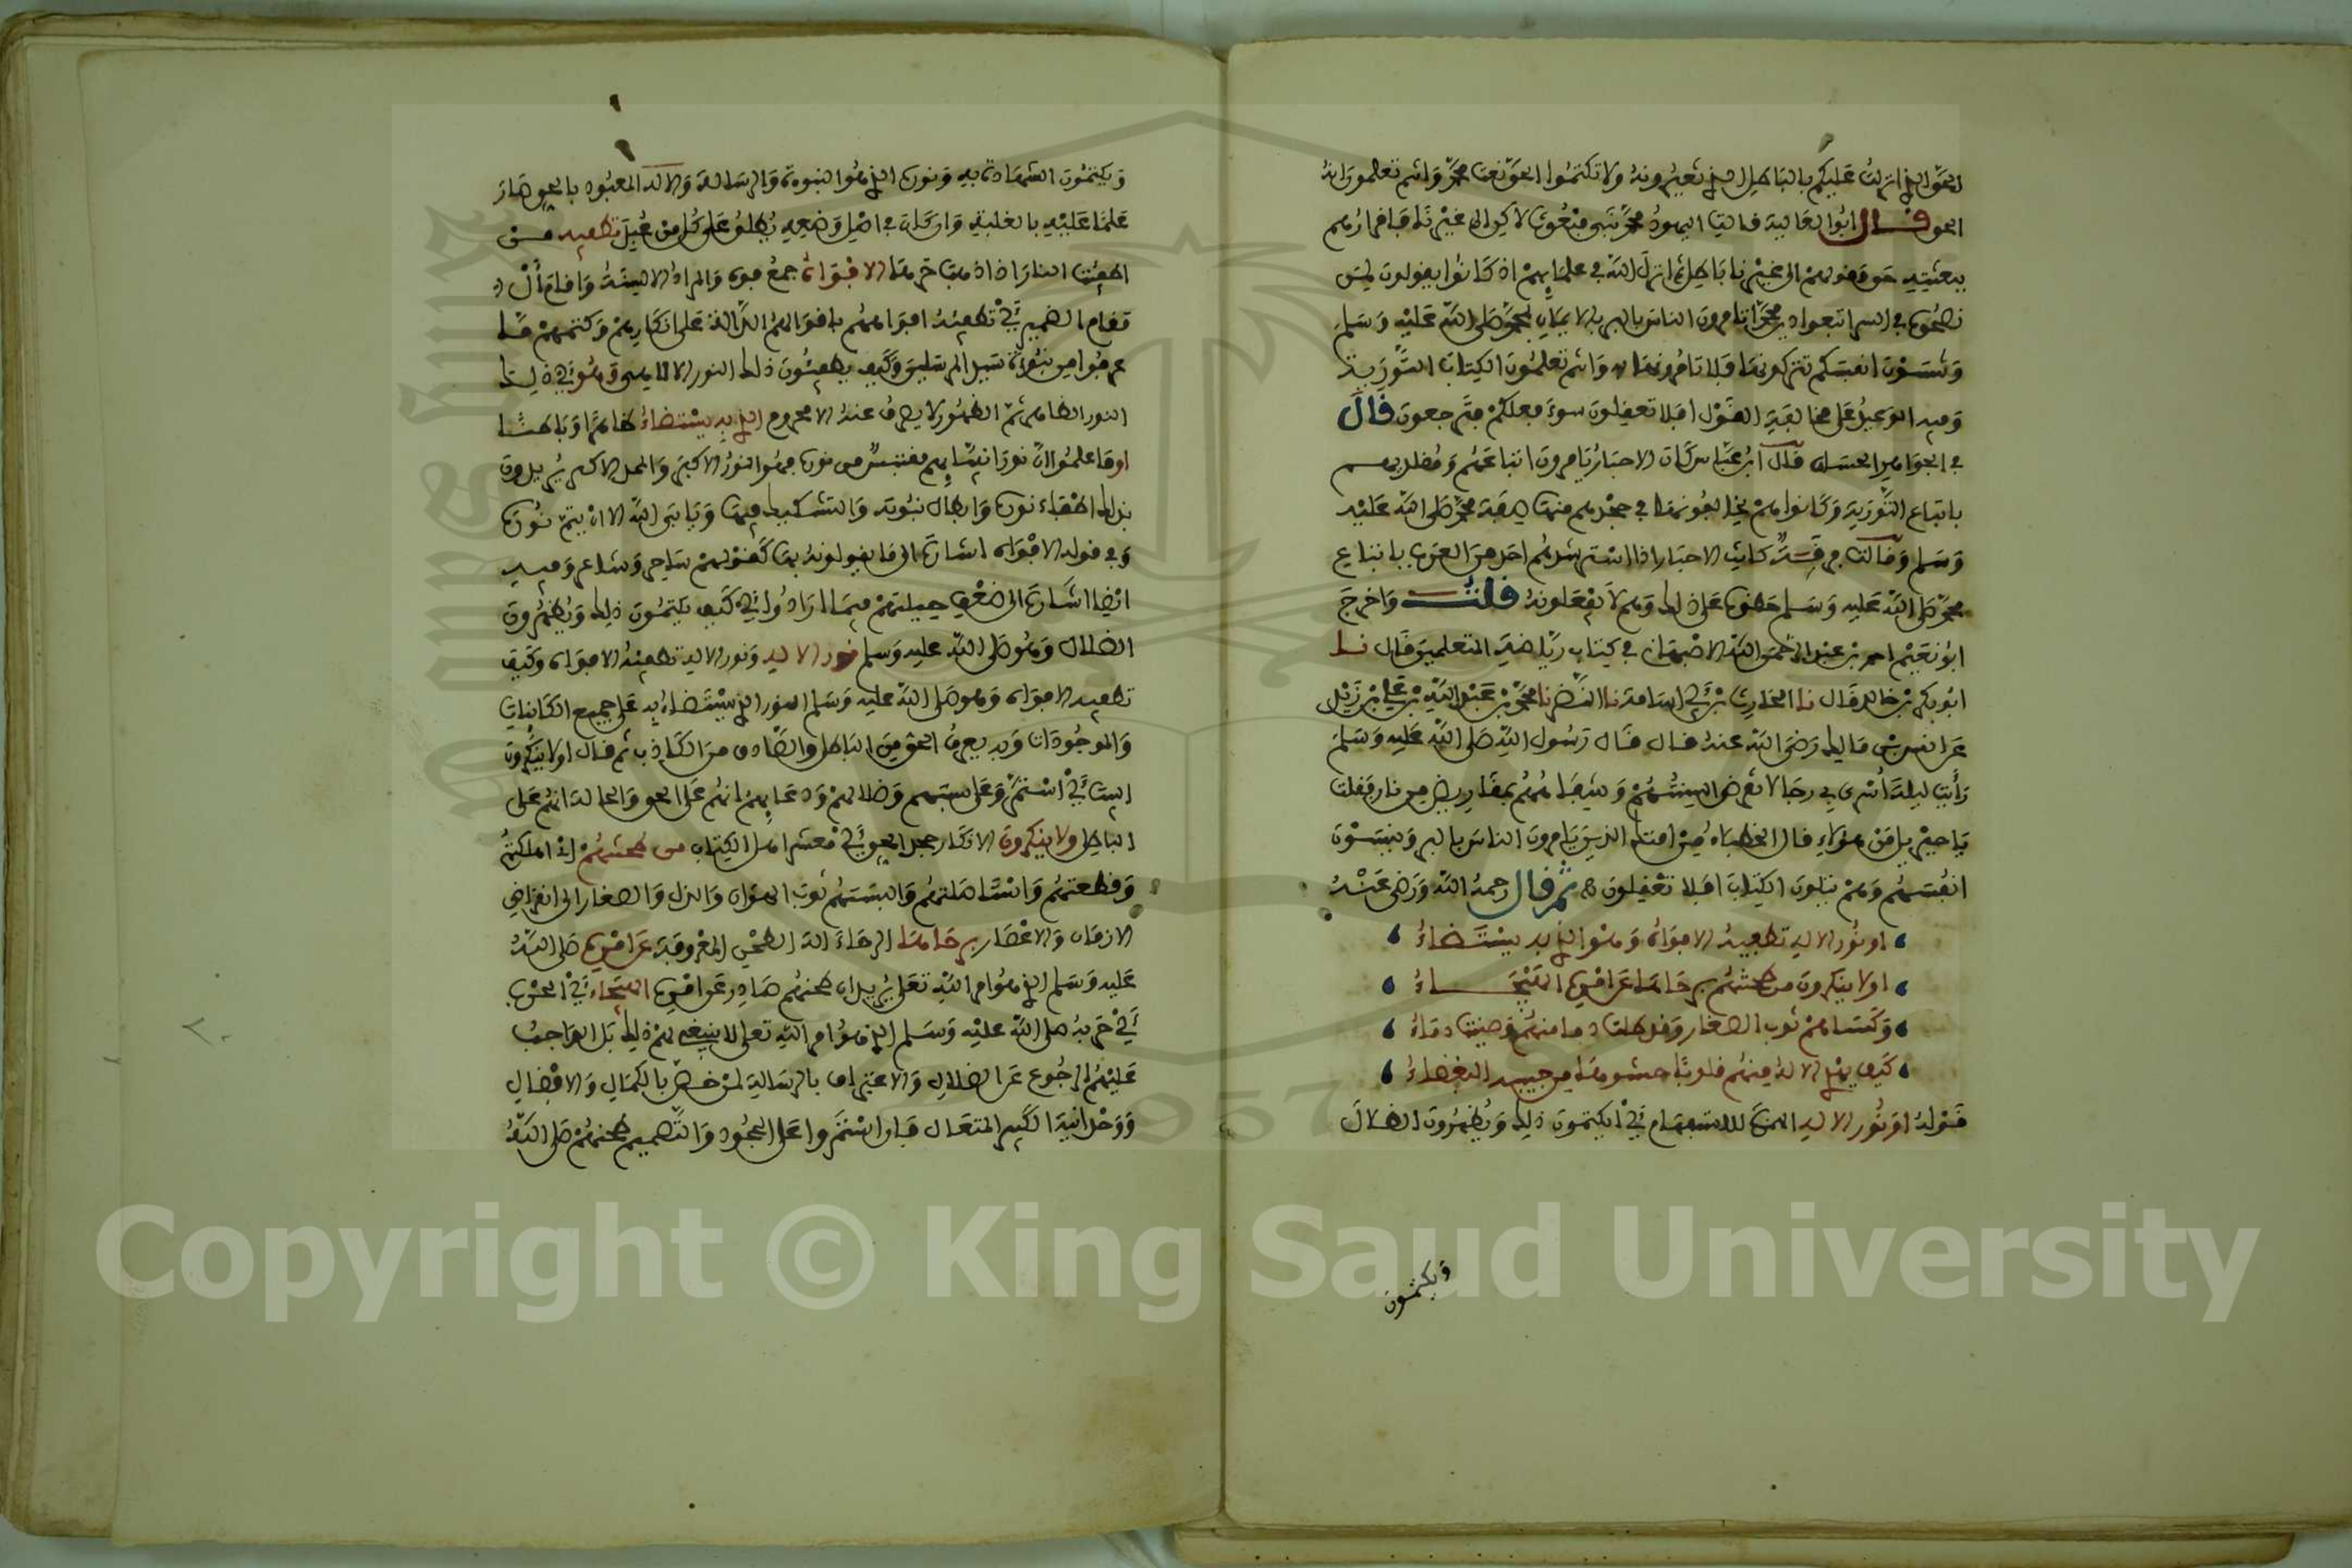 الحق الذي انزلت عليكم بالباطل الذي تغيرونه ولا تكتموا الحق نعت محمد وانتم تعلمون انه
الحق قال ابوا العالية قالت اليهود محمد نبي مبعوث لاكن الى غيرنا فاقرارهم
ببعثته حق وقولهم الى غيرنا باطل ثم انزل الله في علمائهم اذ كانوا يقولون لمن
نصحوه في السر اتبعوا دين محمد اتامرون الناس بالبر بالايمان بمحمد صلى الله عليه وسلم
وتنسون انفسكم تتركونها فلا تامرونها به وانتم تعلمون الكتاب التورية
وفيه الوعيد على مخالفة القول افلا تعقلون سوء فعلكم فترجعون قال
في الجواهر الحسان قال ابن عباس كان الاحبار يامرون اتباعهم ومقلديهم
باتباع التورية وكانوا هم يخالفونها في جحدهم منها صفة محمد صلى الله عليه
وسلم وقالت فرقة كانت الاحبار اذا استرشدهم احد من العرب باتباع
محمد صلى الله عليه وسلم حضوه على ذلك وهم لا يفعلونه قلت واخرج
ابو نعيم احمد بن عبد الله الاصبهاني في كتاب رياضة المتعلمين قال نا
ابو بكر بن خالد قال نا الحارث بن ابي اسامة نا النضر نا محمد بن عبد الله بن علي بن زيد
عن انس بن مالك رضي الله عنه قال قال رسول الله صلى الله عليه وسلم
رأيت ليلة أسري بي رجالا تقرض السنتهم وشفاههم بمقاريض من نار فقلت
يا جبريل من هؤلاء قال الخطباء من امتك الذين يامرون الناس بالبر وينسون
انفسهم وهم يتلون الكتاب افلا تعقلون ثم قال رحمه الله ورضي عنه
او نور الاله تطفيه الافواه وهو الذي به يستضاء
اولا ينكرون من طحنتهم برحاها عن امره الهيجاء
وكساهم ثوب الصغار وقد طلت دما منهم وصينت دماء
كيف يهدي الاله منهم قلوبا حشوها من حبيبه البغضاء
قوله او نور الاله الهمزة للاستفهام أي ايكتمون ذلك ويظهرون الضلال
ويكتمون
ويكتمون الشهادة به ونوره الذي هو النبوة والرسالة والاله المعبود بالحق صار
علما عليه بالغلبة وان كان في اصل وضعه يطلق على كل من عبد تطفيه من
اطفئت النار اذا اذهبت حرها الافواه جمع فوه والمراد الالسنة واقام أل
مقام الضمير أي تطفئه افواههم باقوالهم الدالة على انكارهم وكتمهم ما
عرفوا من نبوءة سيد المرسلين وكيف يطفئون ذلك النور الالهي وهو أي ذلك
النور الظاهر ثم الظهور لا يصرف عنه الا محروم الذي به يستضاء ظاهرا وباطنا
اوما علموا ان نور انبيائهم مقتبس من نوره فهو النور الاكبر والمدد الاكبر يريدون
بذلك اطفاء نوره وابطال نبوته والتشكيك فيها ويابى الله الا ان يتم نوره
وفي قوله الافواه اشارة الى ما يقولونه بها كقولهم ساحر وشاعر وفيه
ايضا اشارة الى ضعف حيلتهم فيما ارادوا أي كيف يكتمون ذلك ويظهرون
الضلال وهو صلى الله عليه وسلم نور الاله ونور الاله تطفئه الافواه وكيف
تطفيه الافواه وهو صلى الله عليه وسلم النور الذي يستضاء به على جميع الكائنات
والموجودات وبه يعرف الحق من الباطل والصادق من الكاذب ثم قال اولا ينكرون
اليهود أي استمروا على سبهم وضلالهم ودعايهم انهم على الحق والحالة انهم على
الباطل ولا ينكرون الانكار جحد الحق أي معشر اهل الكتاب من طحنتهم اذ اهلكتهم
وقطعتهم واستاصلتهم والبستهم ثوب الهوان والذل والصغار الى انقراض
الازمان والاعصار برحاها الرحاء الة الطحن المعروفة عن امره صلى الله
عليه وسلم الذي هو امر الله تعلى يريد ان طحنهم صادر عن امره الهيجاء أي الحرب
أي حربه صلى الله عليه وسلم الذي هو امر الله تعلى لا ينبغي لهم ذلك بل الواجب
عليهم الرجوع عن الضلال والاعتراف بالرسالة لمن خص بالكمال والافضال
ووحدانية الكبير المتعال فان استمروا على الجحود والتصميم طحنهم صلى الله
Copyright © King Saud University
1957